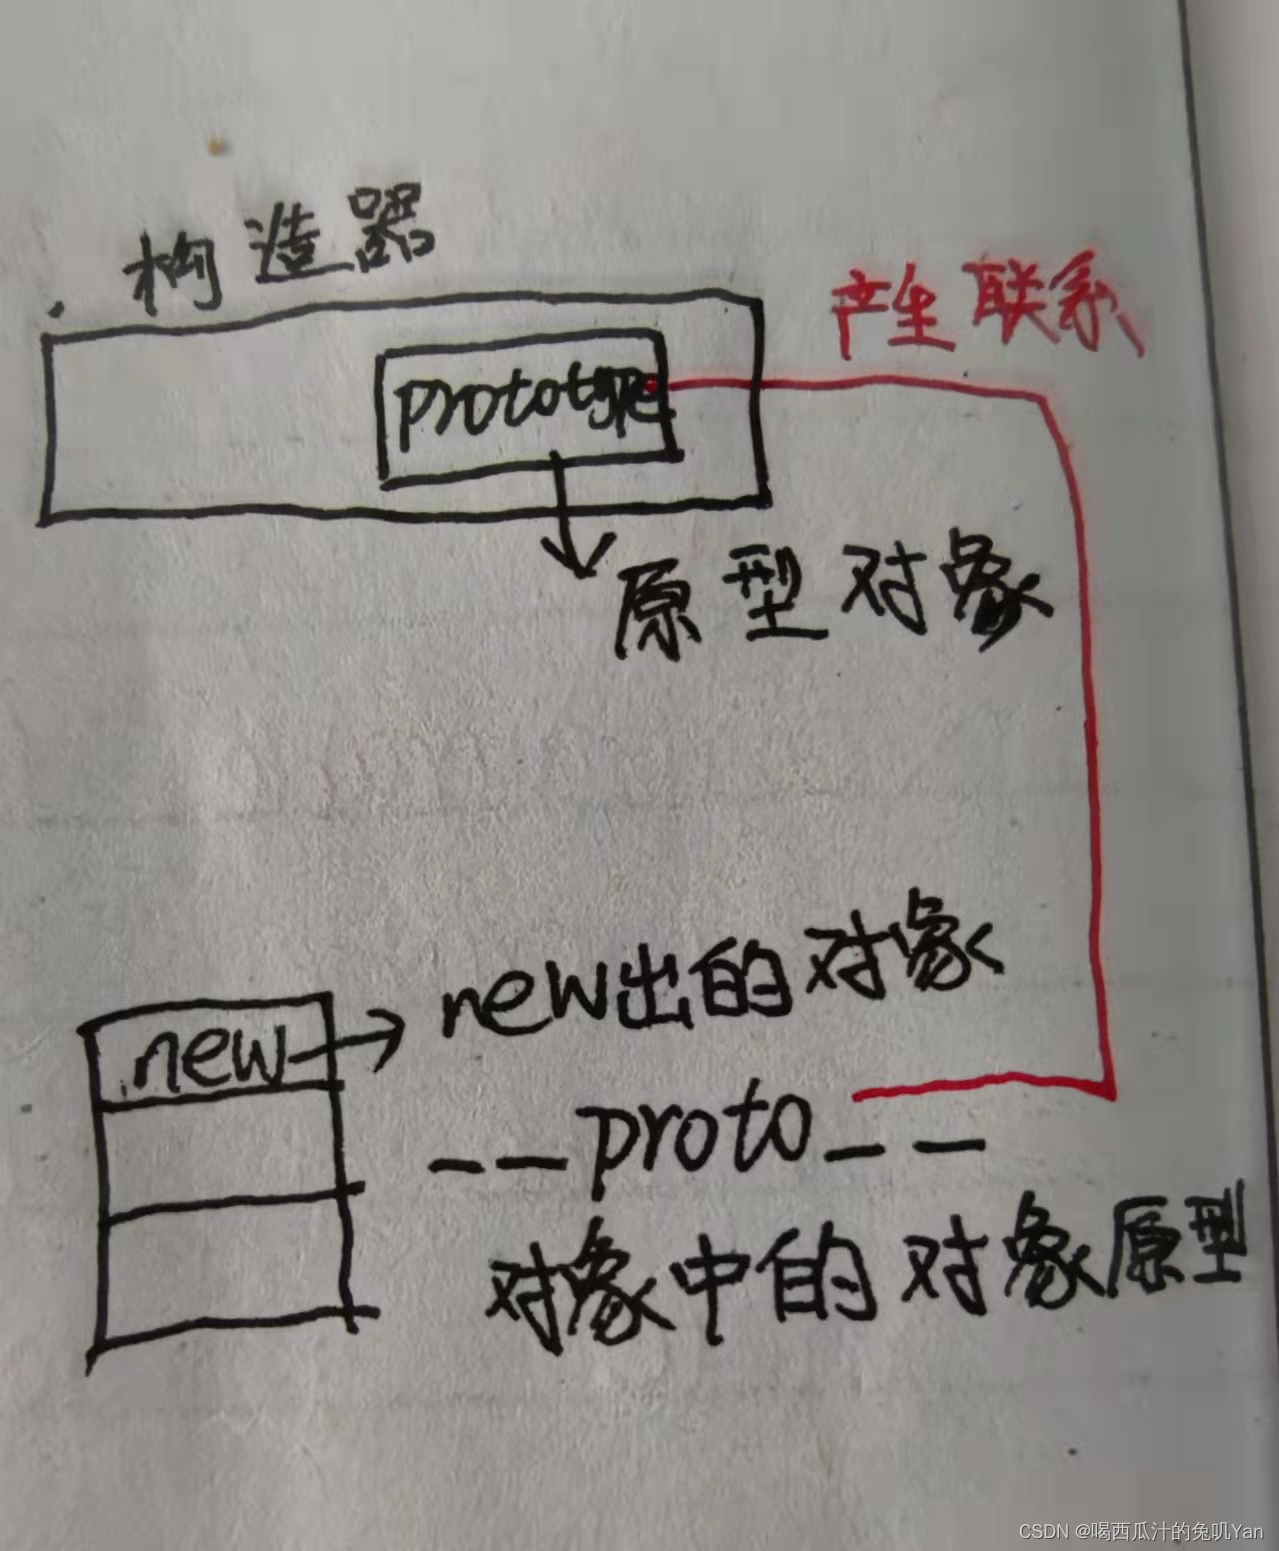 构造器
产生联系
prototype
原型对象
new出的对象
new
--proto--
对象中的对象原型
CSDN @喝西瓜汁的兔叽Yan